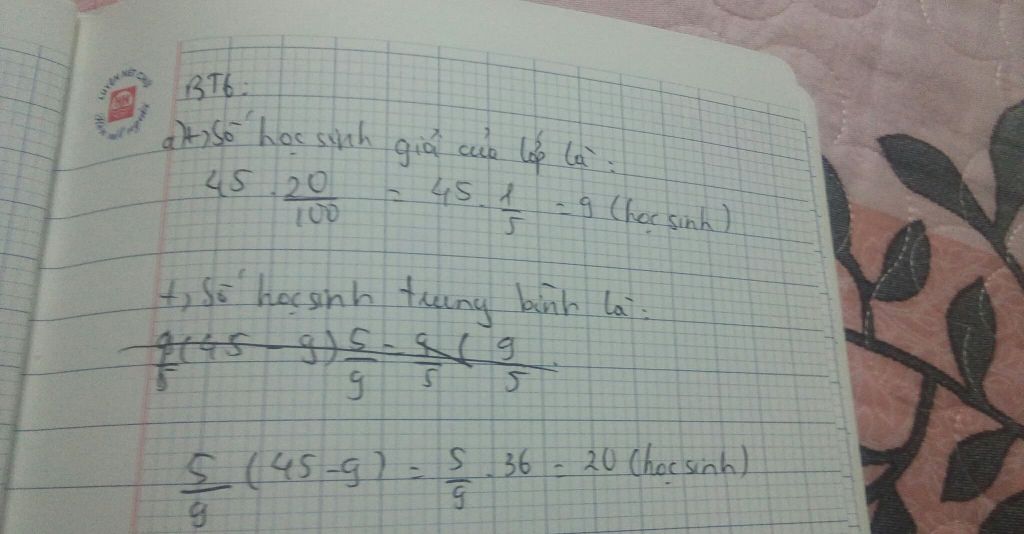 BT6:
a)+, Số học sinh giỏi của lớp là:
45 . 20/100 = 45 . 1/5 = 9 (học sinh)
+, Số học sinh trung bình là:
5/9 (45 - 9) = 5/9 . 36 = 20 (học sinh)